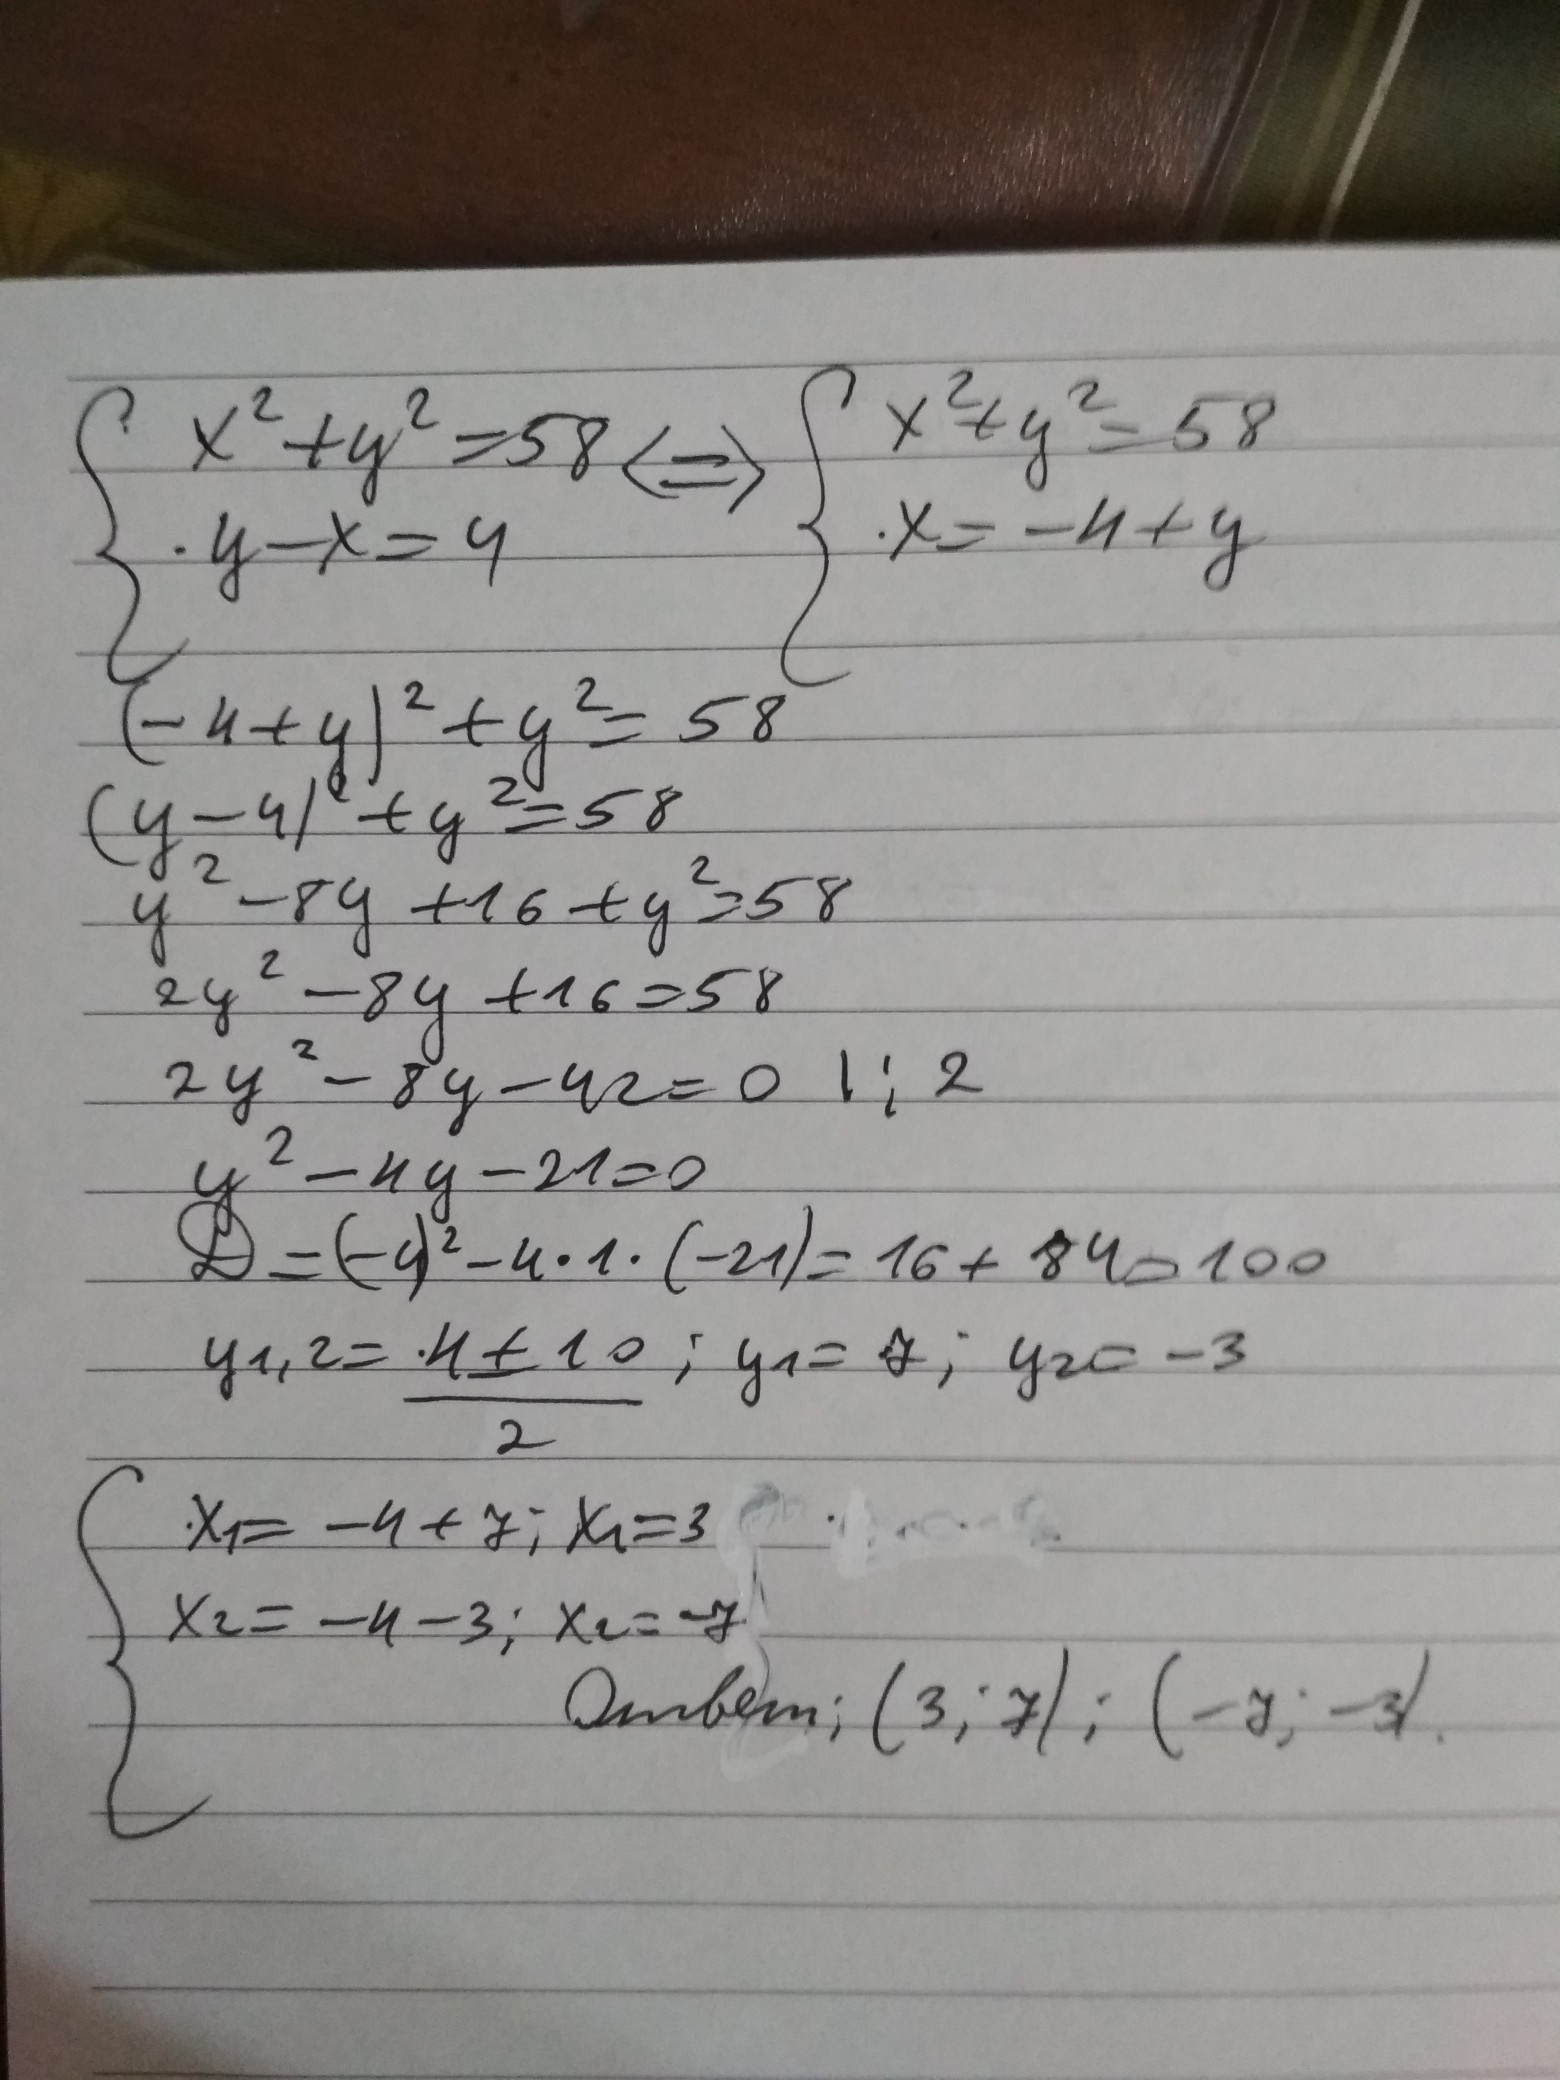 x²+y²=58 <=> x²+y²=58
y-x=4 x=-4+y
(-4+y)²+y²=58
(y-4)²+y²=58
y²-8y+16+y²=58
2y²-8y+16=58
2y²-8y-42=0 |:2
y²-4y-21=0
D=(-4)²-4·1·(-21)=16+84=100
y1,2=4±10/2; y1=7; y2=-3
x1=-4+7; x1=3
x2=-4-3; x2=-7
Ответ: (3;7); (-7;-3).